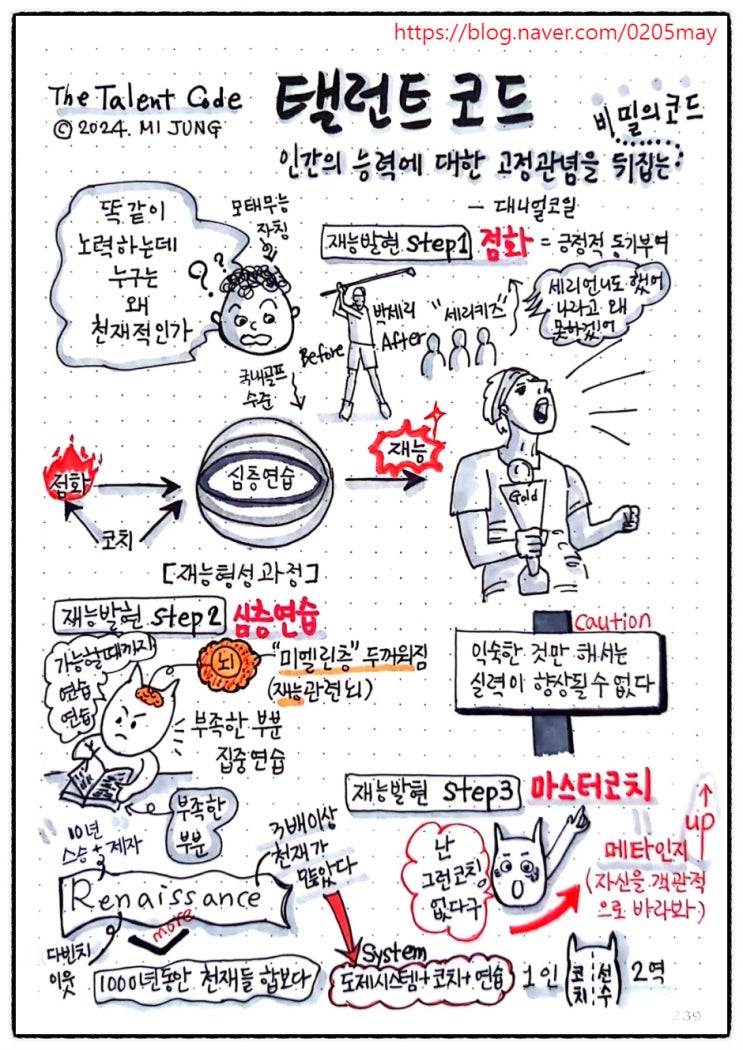 https://blog.naver.com/0205may
The Talent Code
© 2024. MI JUNG
탤런트 코드
비밀의 코드
인간의 능력에 대한 고정관념을 뒤집는
- 대니얼코일
똑같이
노력하는데
누구는
왜
천재적인가
모태무능
자칭
??
재능발현 Step1 점화 = 긍정적 동기부여
Before
박세리
After
"세리키즈"
세리언니도 했어
나라고 왜
못하겠어
국내골프
수준
점화
심층연습
재능
코치
[재능형성과정]
Gold
재능발현 Step2 심층연습
가능할때까지
연습
연습
뇌
"미엘린층" 두꺼워짐
(재능관련뇌)
부족한 부분
집중연습
부족한
부분
caution
익숙한 것만 해서는
실력이 향상될 수 없다
재능발현 Step3 마스터코치
난
그런코칭
없다구
up
메타인지
(자신을 객관적
으로 바라봐)
10년
스승+제자
3배이상
천재가
많았다
Renaissance
more
다빈치
이웃
1000년동안 천재들 합보다
System
도제시스템+코치+연습
1인
코치
선수
2역
239